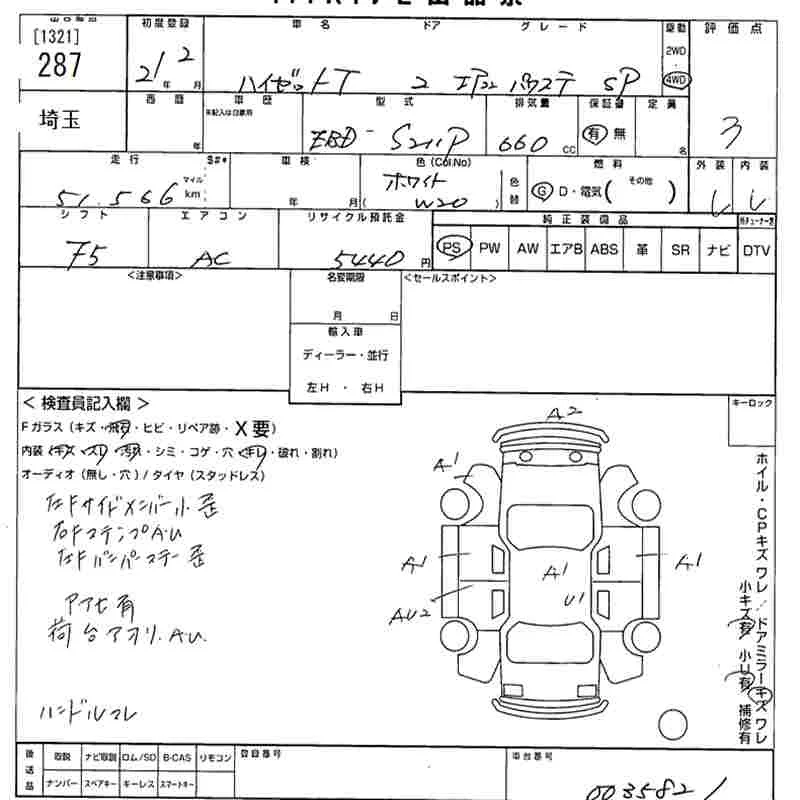 [1321]
287
初度登録
21 年 2 月
車名 ドア グレード
ハイゼットT 2 エアコン パワステ SP
駆動
2WD
4WD
評価点
3
埼玉
西暦
年
車歴
未記入は自家用
型式
EBD-S211P
排気量
660 cc
保証書
有 無
定員
名
走行
51,566
マイル
km
車検
年 月
色 (Col.No)
ホワイト
( W20 )
色替
燃料
G D・電気 (その他 )
外装
内装
シフト
F5
エアコン
AC
リサイクル預託金
5440 円
純正装備品
PS PW AW エアB ABS 革 SR ナビ DTV
<注意事項>
名変期限
月 日
<セールスポイント>
輸入車
ディーラー・並行
左H ・ 右H
キーロック
<検査員記入欄>
Fガラス (キズ・飛石・ヒビ・リペア跡・X要)
内装 (キズ・スレ・汚れ・シミ・コゲ・穴・キレ・破れ・割れ)
オーディオ (無し・穴) / タイヤ (スタッドレス)
左Fサイドメンバー小歪
右FステップAU
左Fバンパーステー歪
アアヒ有
荷台アオリ.AU.
ハンドルマレ
A2
A1
A1
A1
U1
A1
AU2
ホイル・CPキズ ワレ / ドアミラーキズ ワレ
小キズ有 小U有 補修有
後送品
取説 ナビ取説 ロム/SD B-CAS リモコン
ナンバー スペアキー キーレス スマートキー
登録番号
車台番号
0035821